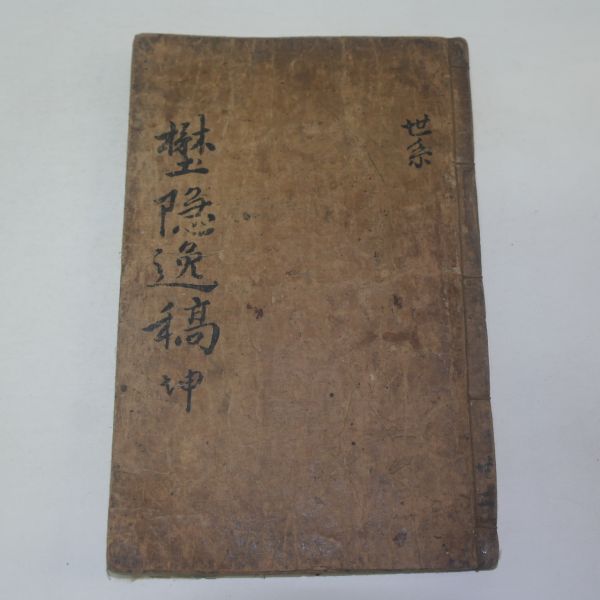 世系
壄隱逸稿 坤